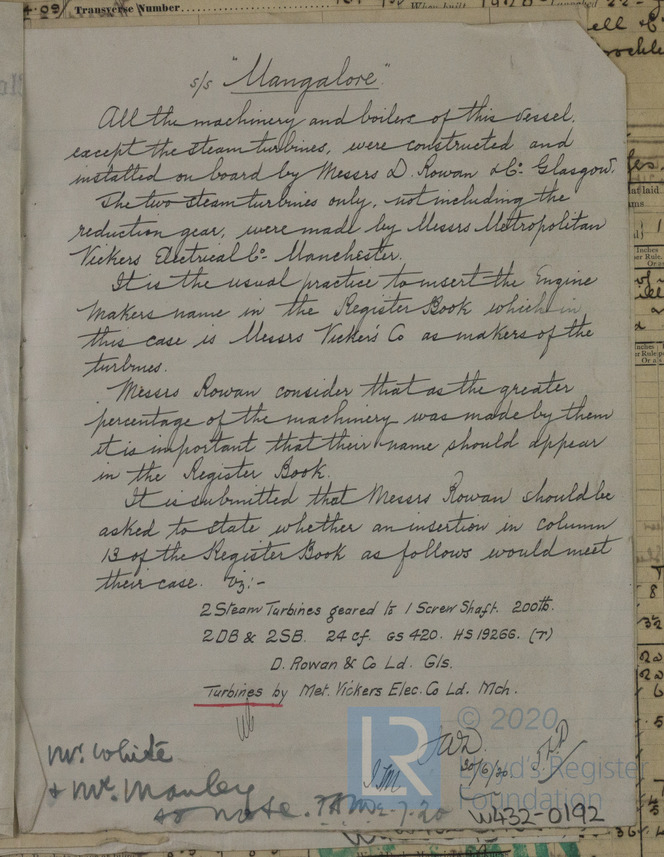 4.09
Transverse Number
s/s "Mangalore"
All the machinery and boilers of this vessel,
except the steam turbines, were constructed and
installed on board by Messrs D. Rowan & Co. Glasgow.
The two steam turbines only, not including the
reduction gear, were made by Messrs Metropolitan
Vickers Electrical Co. Manchester.
It is the usual practice to insert the Engine
Makers name in the Register Book which in
this case is Messrs Vickers Co as makers of the
turbines.
Messrs Rowan consider that as the greater
percentage of the machinery was made by them
it is important that their name should appear
in the Register Book.
It is submitted that Messrs Rowan should be
asked to state whether an insertion in column
13 of the Register Book as follows would meet
their case. Viz:-
2 Steam Turbines geared to 1 Screw Shaft. 200lb.
2DB & 2SB. 24 cf. GS 420. HS 19266. (T)
D. Rowan & Co Ld. Gls.
Turbines by Met. Vickers Elec. Co Ld. Mch.
Mr. White
& Mr. Manley
to note.
20/6/20
© 2020
Lloyd's Register
Foundation
W432-0192